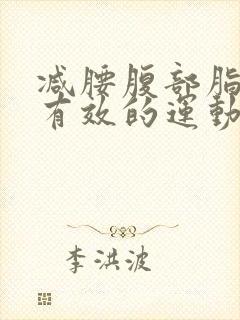 减腰腹部脂
有效的運動
李洪波